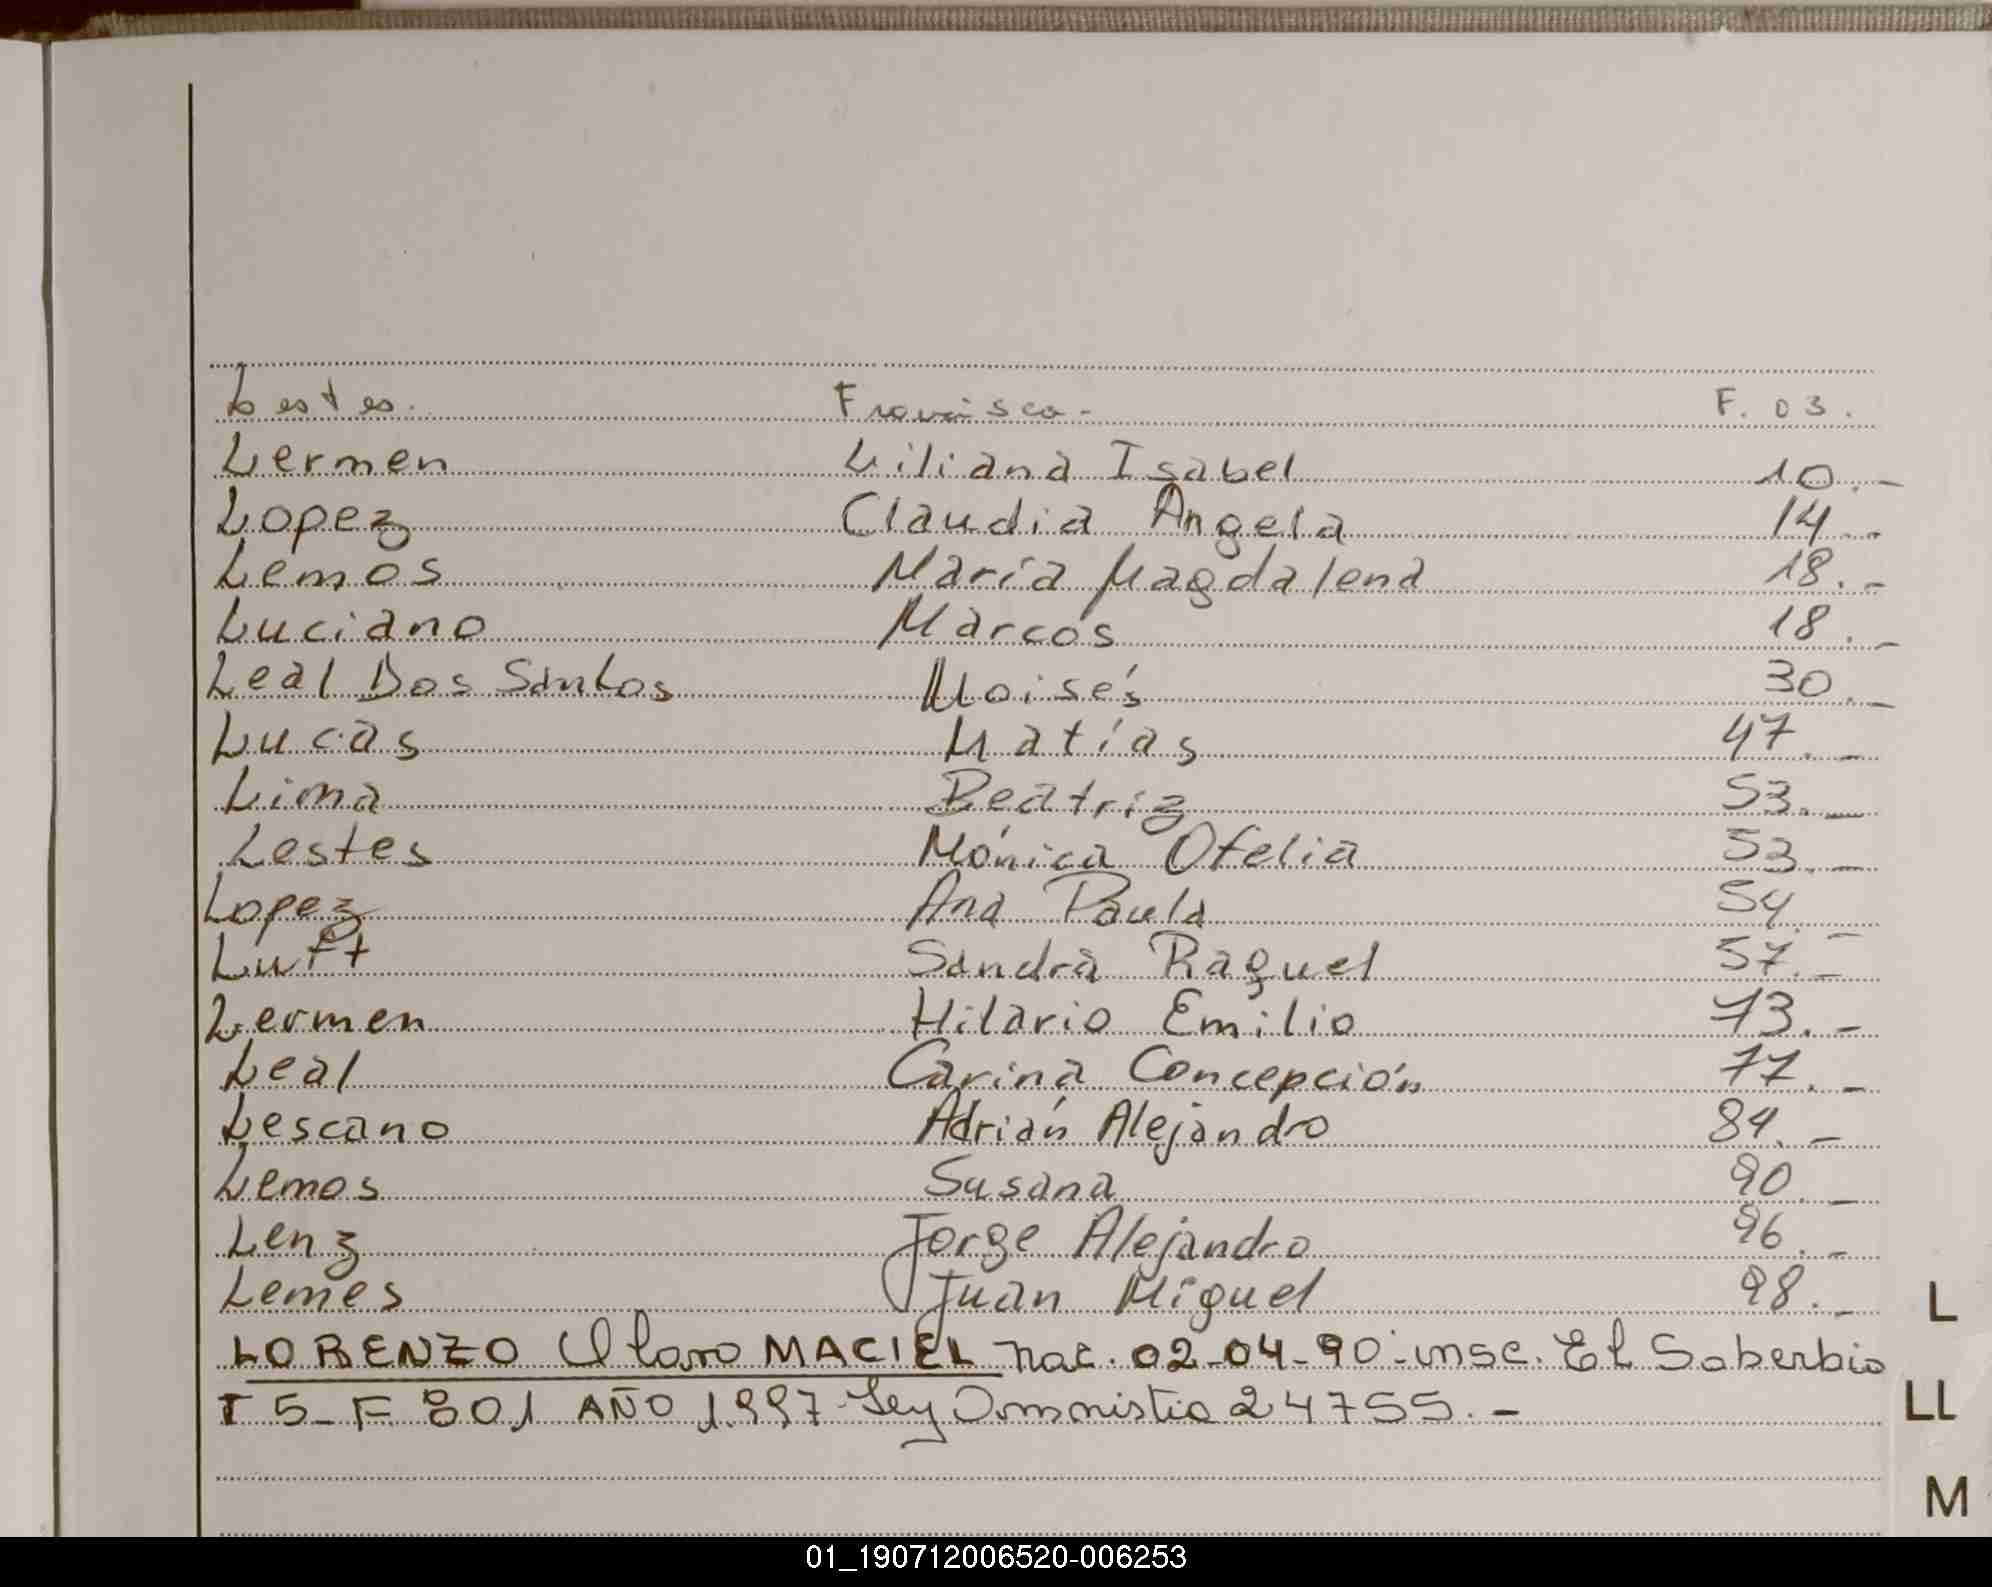 Lestes. Francisca.- F. 03.
Lermen Liliana Isabel 10.-
Lopez Claudia Angela 14.-
Lemos María Magdalena 18.-
Luciano Marcos 18.-
Leal Dos Santos Moisés 30.-
Lucas Matías 47.-
Lima Beatriz 53.-
Lestes Mónica Ofelia 53.-
Lopez Ana Paula 54.-
Luft Sandra Raquel 57.-
Lermen Hilario Emilio 73.-
Leal Carina Concepción 77.-
Lescano Adrián Alejandro 84.-
Lemos Susana 90.-
Lenz Jorge Alejandro 96.-
Lemes Juan Miguel 98.-
L
LORENZO MACIEL nac. 02-04-90-insc. El Soberbio
T 5-F 801 AÑO 1.997-Ley 24755.-
LL
M
01_190712006520-006253